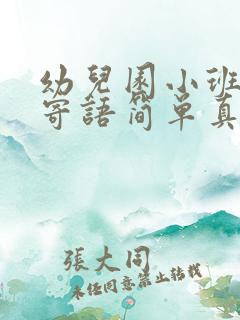 幼兒園小班
寄語簡單真
張大同
未经同意禁止转载